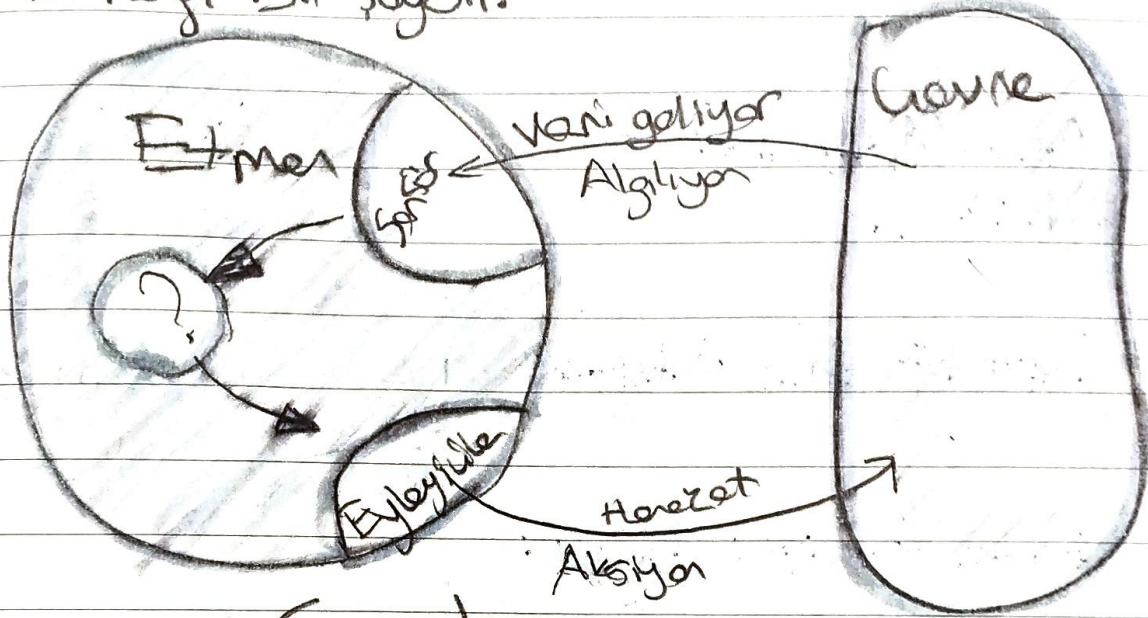 Etmen
Sensör
?
Eyleyiciler
Veri geliyor
Algılıyor
Hareket
Aksiyon
Çevre